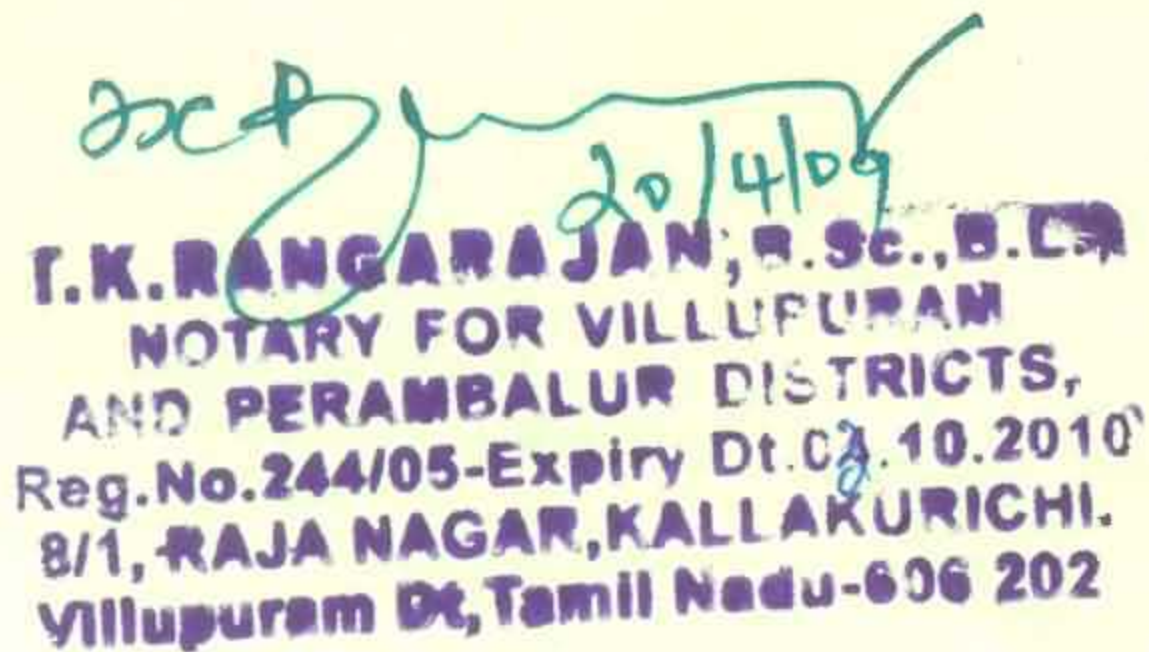 20/4/09
T.K.RANGARAJAN, B.Sc.,B.L.,
NOTARY FOR VILLUPURAM
AND PERAMBALUR DISTRICTS,
Reg.No.244/05-Expiry Dt. .10.2010
8/1, RAJA NAGAR,KALLAKURICHI.
Villupuram Dt,Tamil Nadu-606 202